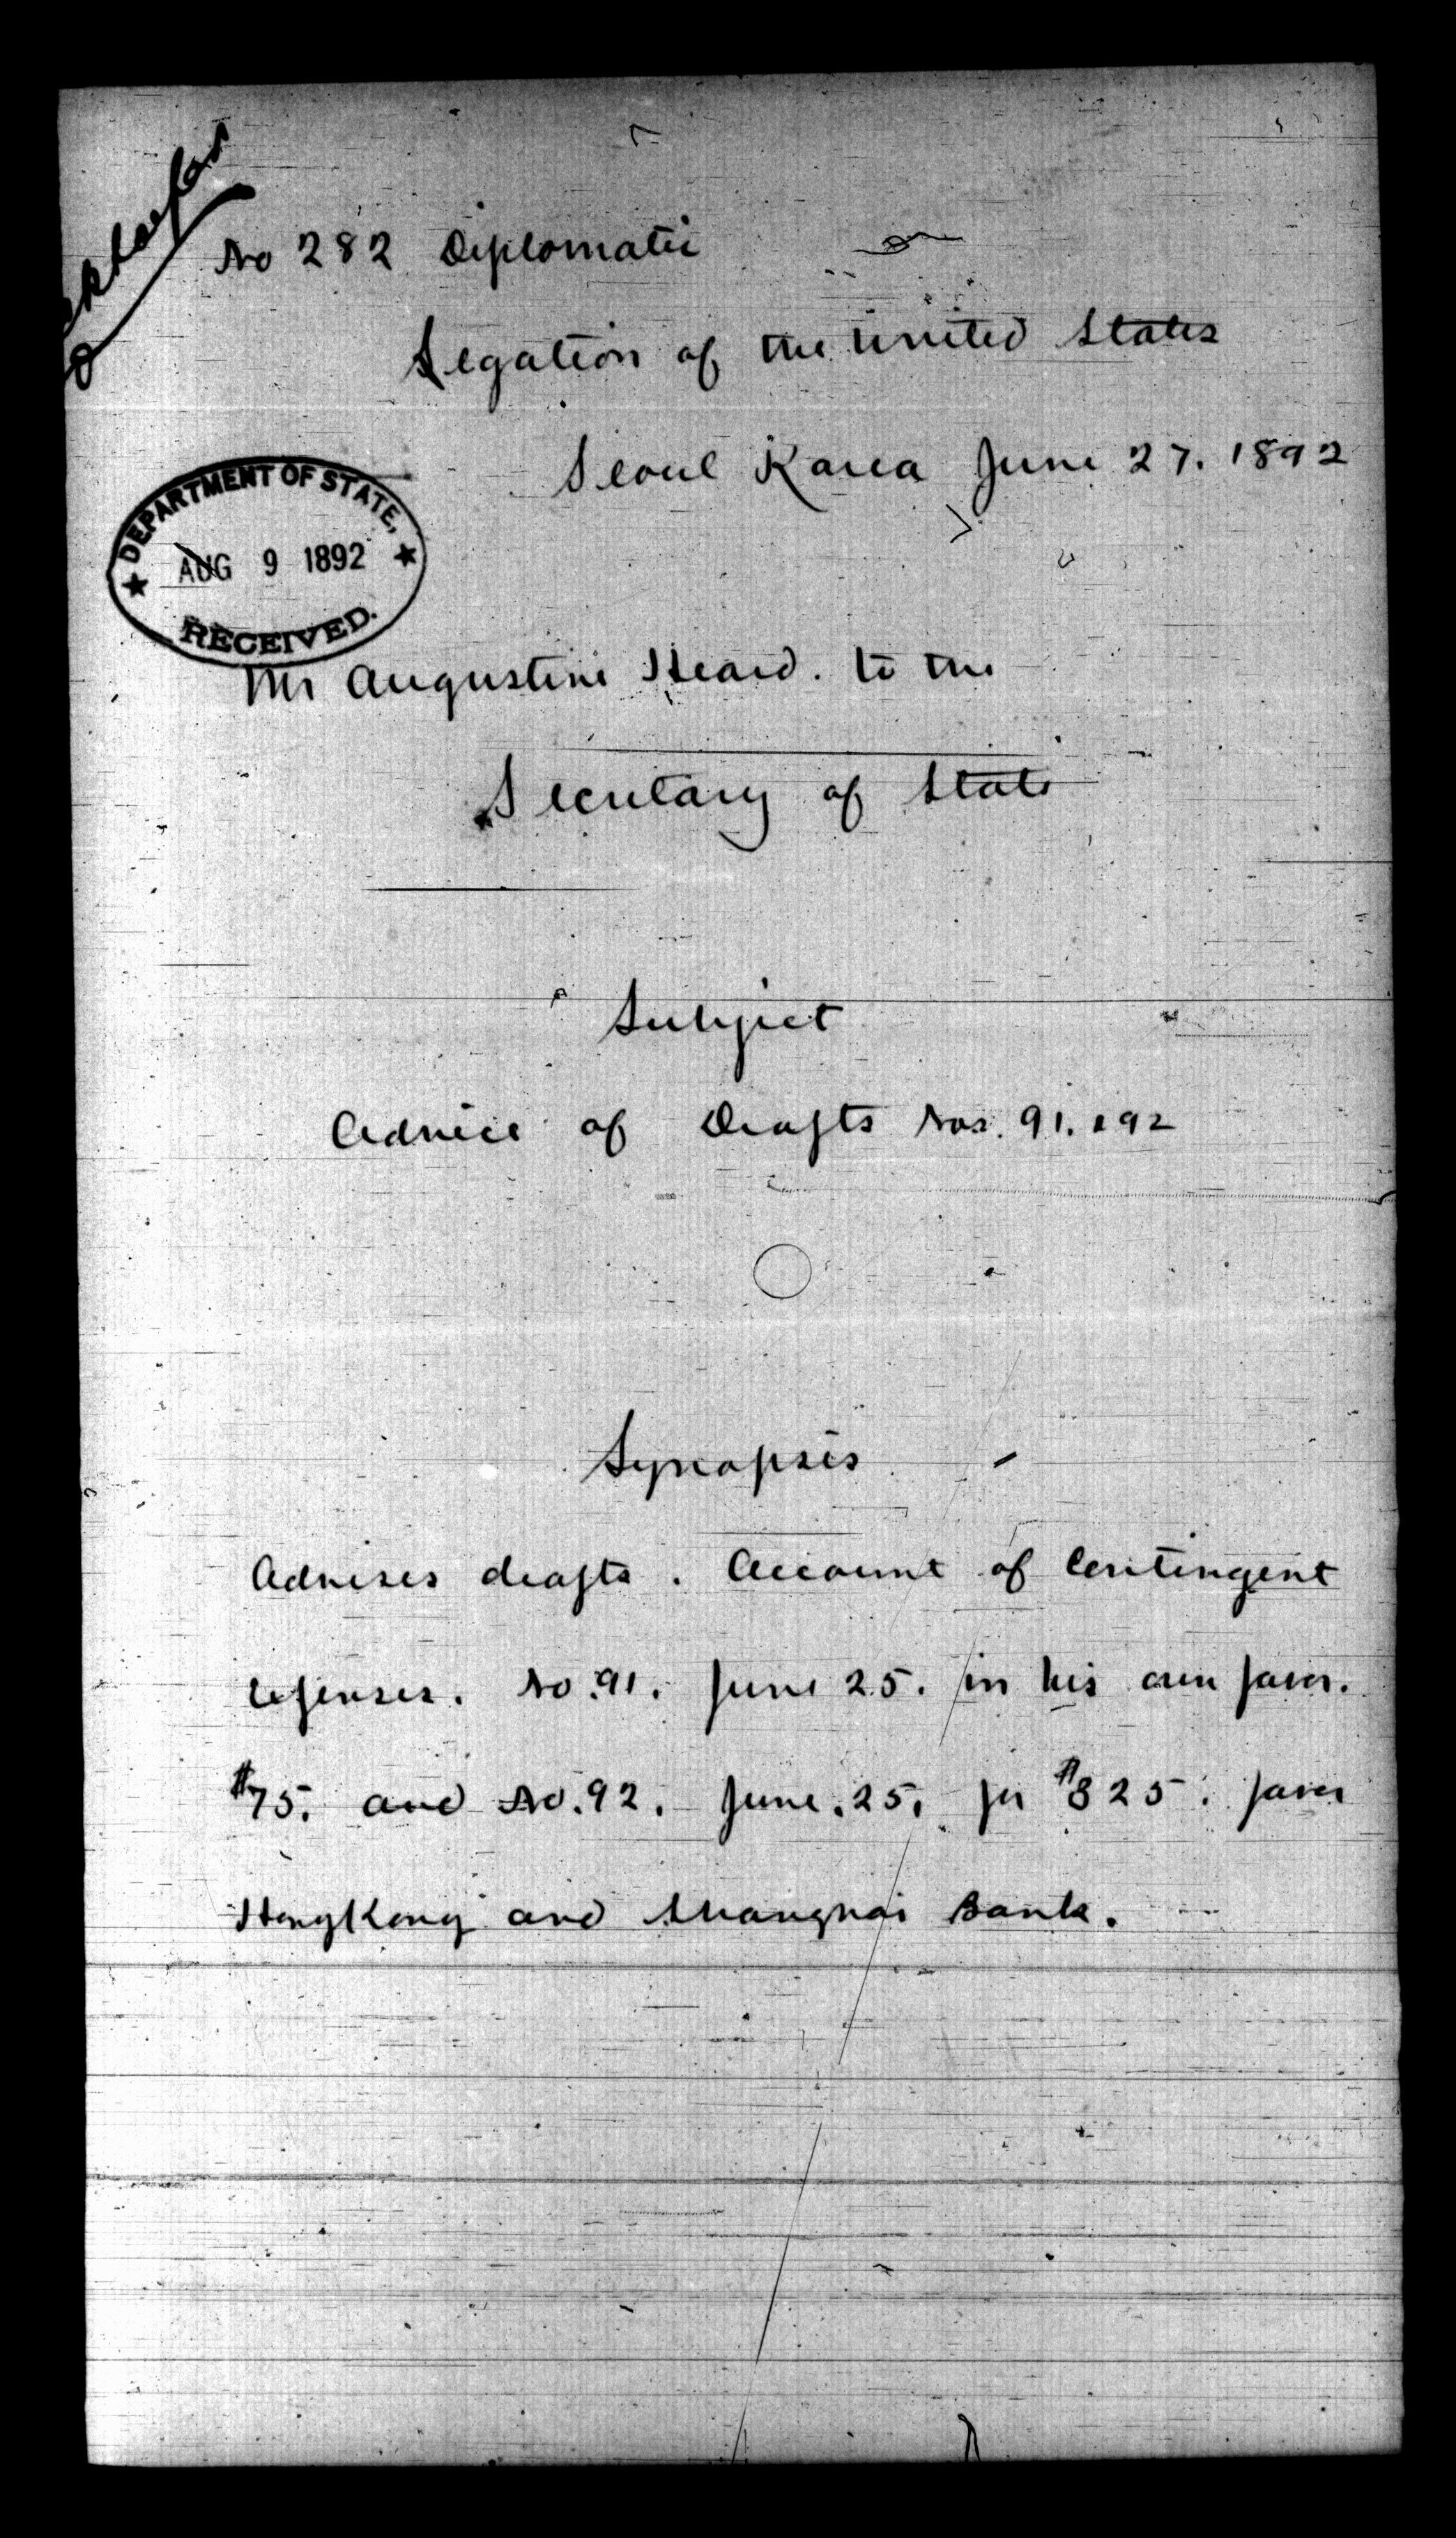 No 282 Diplomatic
Legation of the United States
Seoul Korea June 27. 1892
DEPARTMENT OF STATE,
AUG 9 1892
RECEIVED.
Mr Augustine Heard. to the
Secretary of State
Subject
Advice of Drafts Nos. 91. & 92
Synopsis
Advises drafts. Account of Contingent
expenses. No. 91. June 25. in his own favor.
$75. and No. 92. June. 25. for $825. favor
HongKong and Shanghai Bank.